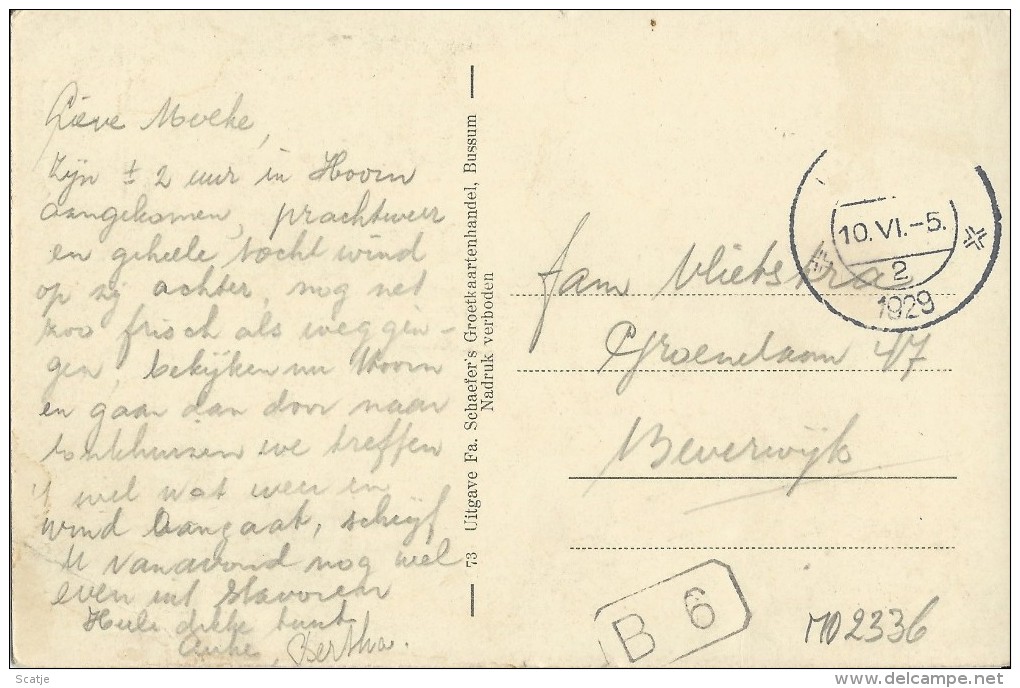 Lieve Moeke,
Zijn ± 2 uur in Hoorn
aangekomen, prachtweer
en geheele tocht wind
op zij achter, nog net
zoo frisch als weggin-
gen, bekijken nu Hoorn
en gaan dan door naar
Enkhuizen we treffen
't wel wat weer en
wind aangaat, schrijf
U vanavond nog wel
even uit Stavoren
Heele dikke
Bertha.
73 Uitgave Fa. Schaefer's Groetkaartenhandel, Bussum
Nadruk verboden
10.VI.-5.
2
1929
fam Vlietstra
Groenelaan 47
Beverwijk
B 6
MO2336
Scatje